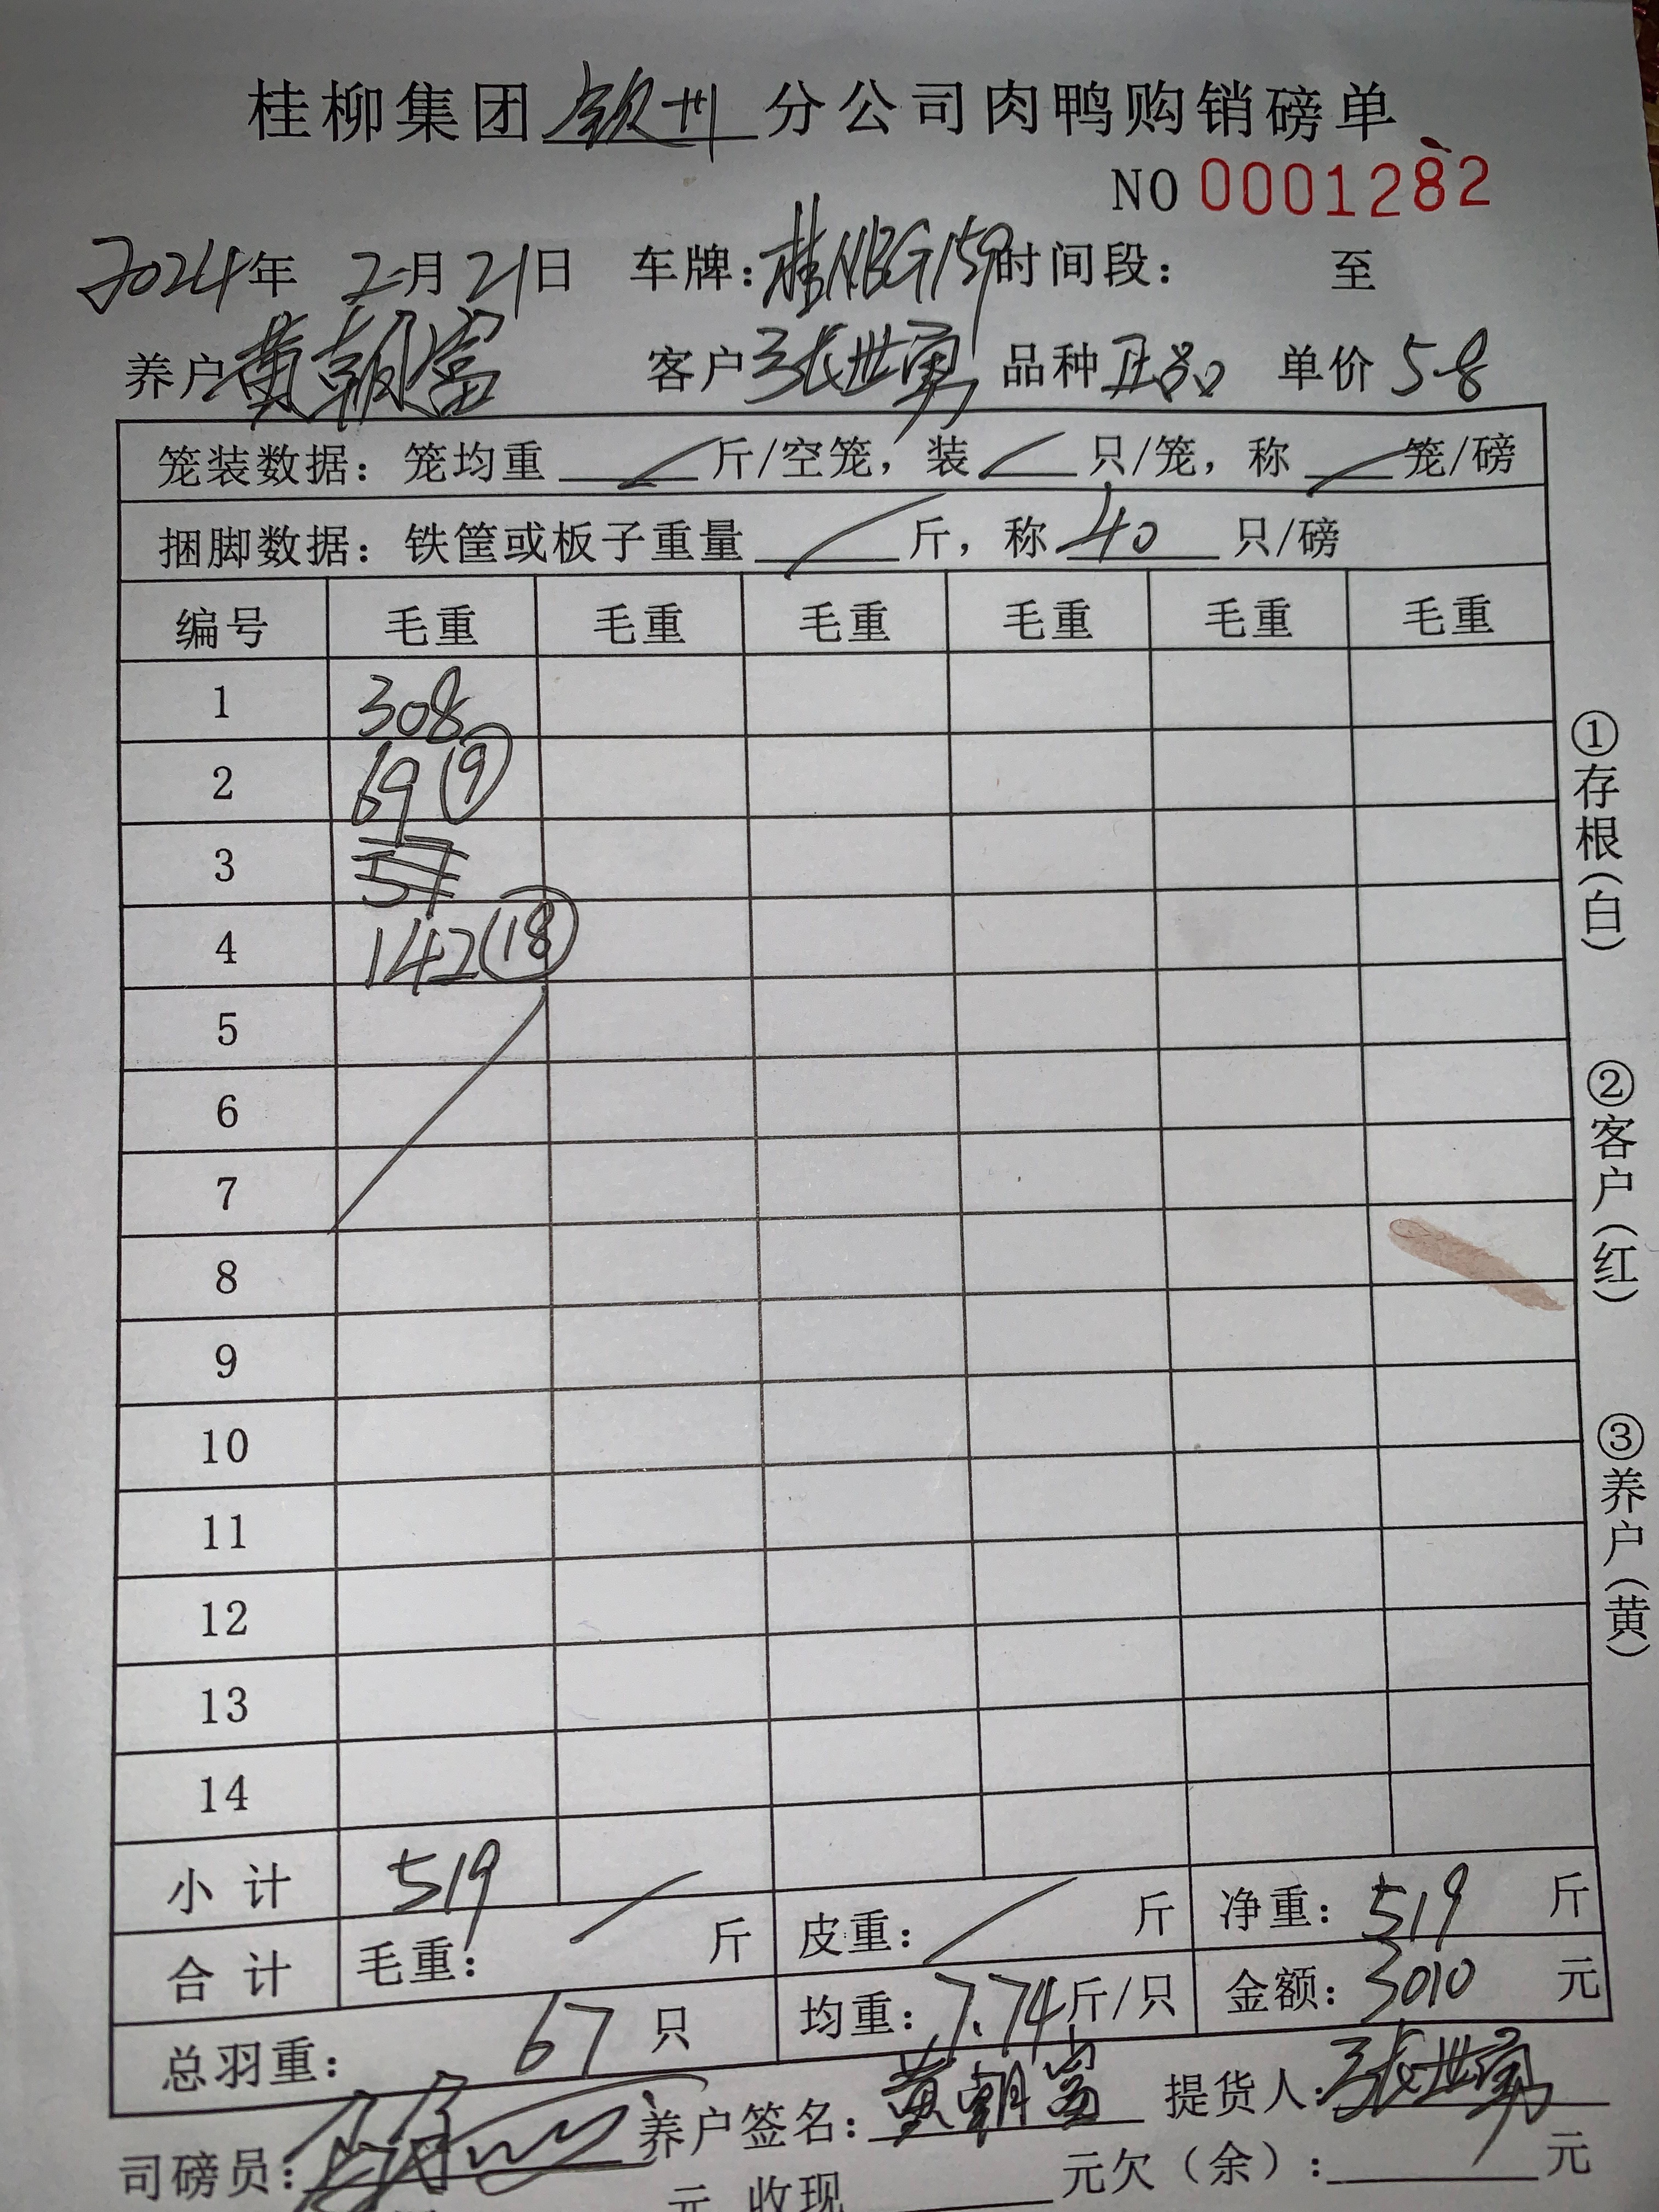 桂柳集团 钦州 分公司肉鸭购销磅单
NO 0001282
2024年 2月21日 车牌：桂NBG159 时间段： 至
养户 黄朝富 客户 张世勇 品种 正品 单价 5.8
笼装数据：笼均重 斤/空笼，装 只/笼，称 笼/磅
捆脚数据：铁筐或板子重量 斤，称 40 只/磅
编号 毛重 毛重 毛重 毛重 毛重 毛重
1 308
2 69 (9)
3 57
4 142 (18)
5
6
7
8
9
10
11
12
13
14
小计 519
合计 毛重： 斤 皮重： 斤 净重：519 斤
总羽重： 67 只 均重：7.74斤/只 金额：3010 元
司磅员： 养户签名：黄朝富 提货人：张世勇
元 收现 元欠（余）： 元
①存根（白）
②客户（红）
③养户（黄）